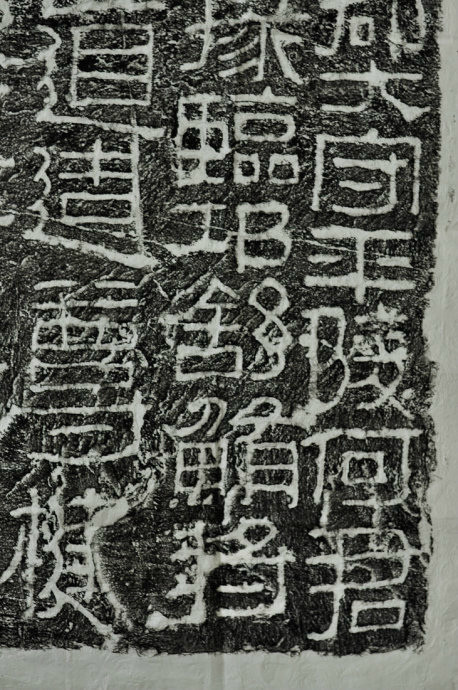 郡大守平陵何君
掾臨邛舒鮪將
道造尊楗